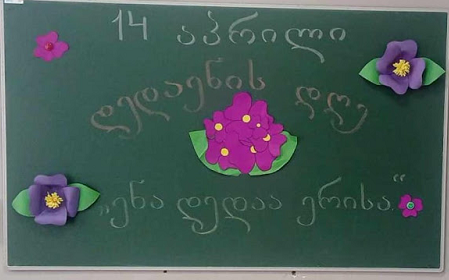 14 აპრილი
დედაენის დღე
„ენა დედაა ერისა.“